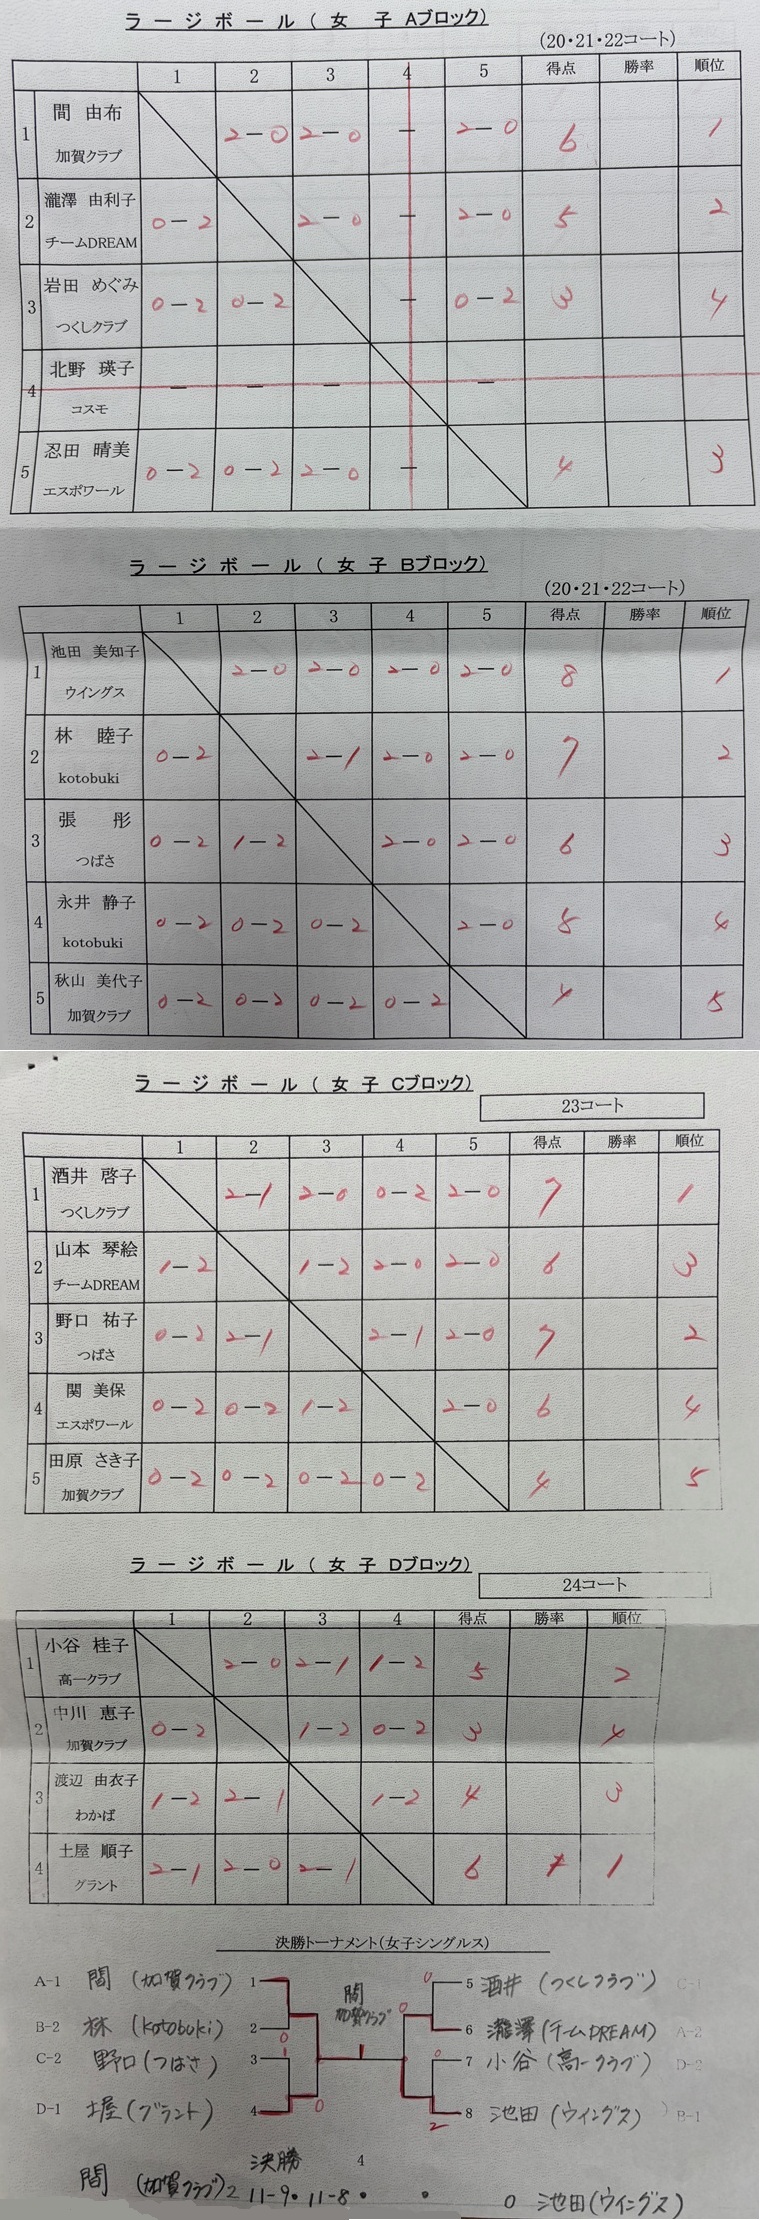 ラージボール(女 子 Aブロック)
(20・21・22コート)
1 2 3 4 5 得点 勝率 順位
1 間 由布 2-0 2-0 - 2-0 6 1
加賀クラブ
2 瀧澤 由利子 0-2 2-0 - 2-0 5 2
チームDREAM
3 岩田 めぐみ 0-2 0-2 - 0-2 3 4
つくしクラブ
4 北野 瑛子 - - - -
コスモ
5 忍田 晴美 0-2 0-2 2-0 - 4 3
エスポワール
ラージボール(女 子 Bブロック)
(20・21・22コート)
1 2 3 4 5 得点 勝率 順位
1 池田 美知子 2-0 2-0 2-0 2-0 8 1
ウイングス
2 林 睦子 0-2 2-1 2-0 2-0 7 2
kotobuki
3 張 彤 0-2 1-2 2-0 2-0 6 3
つばさ
4 永井 静子 0-2 0-2 0-2 2-0 5 4
kotobuki
5 秋山 美代子 0-2 0-2 0-2 0-2 4 5
加賀クラブ
ラージボール(女 子 Cブロック)
23コート
1 2 3 4 5 得点 勝率 順位
1 酒井 啓子 2-1 2-0 0-2 2-0 7 1
つくしクラブ
2 山本 琴絵 1-2 1-2 2-0 2-0 6 3
チームDREAM
3 野口 祐子 0-2 2-1 2-1 2-0 7 2
つばさ
4 関 美保 0-2 0-2 1-2 2-0 6 4
エスポワール
5 田原 さき子 0-2 0-2 0-2 0-2 4 5
加賀クラブ
ラージボール(女 子 Dブロック)
24コート
1 2 3 4 得点 勝率 順位
1 小谷 桂子 2-0 2-1 1-2 5 2
高一クラブ
2 中川 恵子 0-2 1-2 0-2 3 4
加賀クラブ
3 渡辺 由衣子 1-2 2-1 1-2 4 3
わかば
4 土屋 順子 2-1 2-0 2-1 6 1
グラント
決勝トーナメント(女子シングルス)
A-1 間 (加賀クラブ) 1
0 5 酒井 (つくしクラブ) C-1
間
加賀クラブ
B-2 林 (kotobuki) 2 0
0 6 瀧澤(チームDREAM) A-2
C-2 野口(つばさ) 3 1
1
0 7 小谷(高一クラブ) D-2
D-1 土屋(グラント) 4 0
2 8 池田(ウィングス) B-1
決勝 4
間 (加賀クラブ) 2 11-9・11-8・ ・ 0 池田(ウイングス)